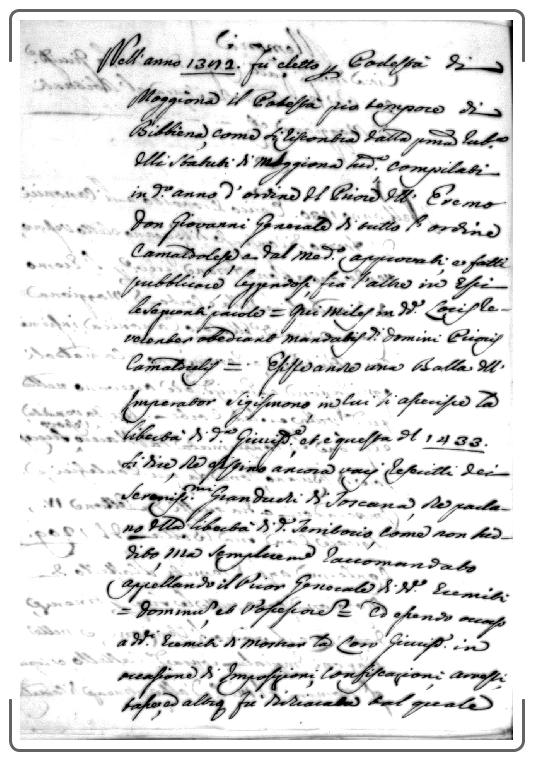 Nell' anno 1392. fù eletto p Podestà di
Moggiona il Podestà pro tempore di
Bibbiena, come si riscontra dalla pma Rub.
delli Statuti di Moggiona sud. compilati
in d. anno d'ordine del Priore dell' Eremo
Don Giovanni Generale di tutto l'ordine
Camaldolese, e dal med. approvati, e fatti
pubblicare leggendosi fra l'altre in Essi
le seguenti parole = Qui Miles in dd. Locis te-
obediant mandatis d. domini Prioris
Camaldulis = Esistendo una Bolla dell'
Imperator Sigismono in cui si asserisce la
libertà di d. Giurisd. et è questa del 1433.
Serenis. Granduchi di Toscana, che parla-
no della libertà di d. Territorio come non sud-
dito, ma semplicem Raccomandato
appellando il Prior Generale di dd. Eremiti
= Dominus et Possessor = Ed essendo occorso
a dd. Eremiti di mostrar la loro Giurisd. in
occasione di Imposizioni, Confiscazioni, arresti,
ed altro, fù dichiarata dal quale